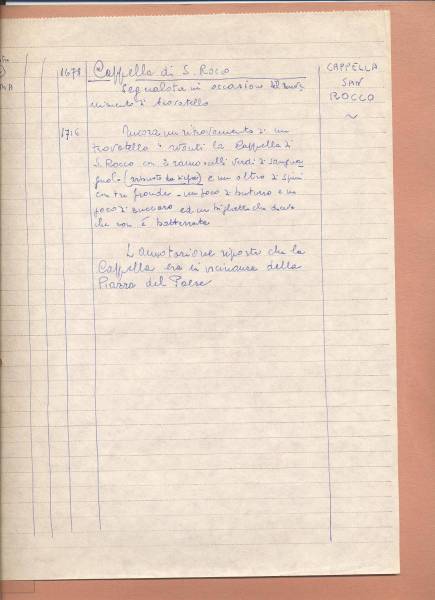 1678 Cappella di S. Rocco
Segnalata in occasione del
di trovatello
CAPPELLA
SAN
ROCCO
Ancora un ritrovamento di un
trovatello davanti la Cappella di
S. Rocco con 3 ramoscelli verdi di
e un altro di spini
con tre fronde - un poco di butirro e un
poco di zuccaro ed un biglietto che
che non è battezzata
L'annotazione riporta che la
Cappella era in vicinanza della
Piazza del Paese